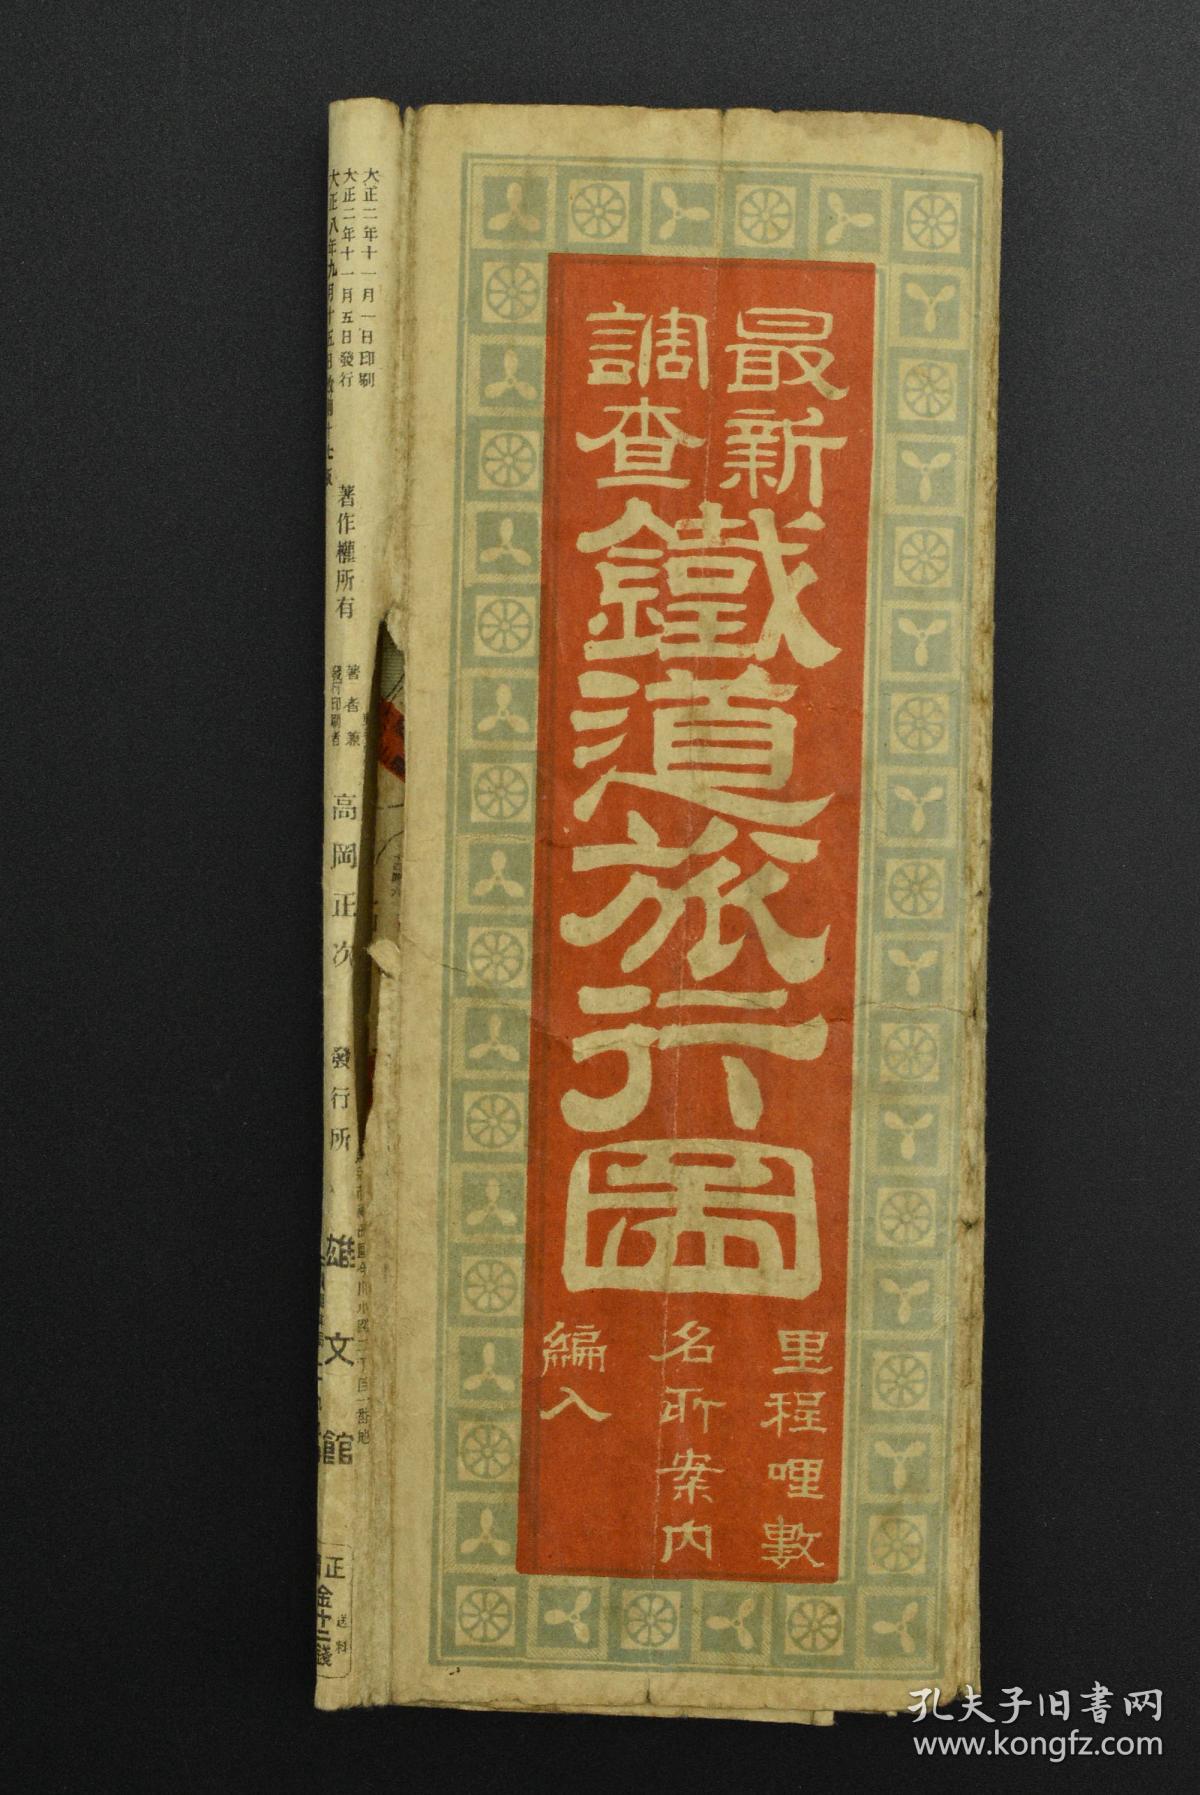 最新
調查
鐵道旅行圖
里程哩數
名所案內
編入
大正二年十一月一日印刷
大正二年十一月五日發行
大正八年九月十五日
著作權所有
著者兼
發行印刷者
高岡正次
發行所
雄文館
正
金十二錢
送料
孔夫子旧書网
www.kongfz.com